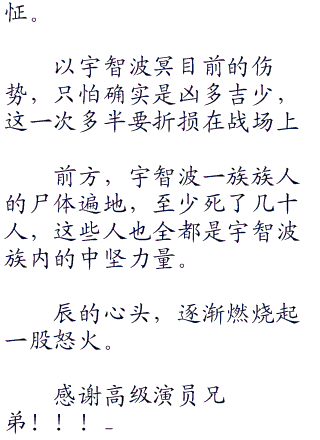 怔。
以宇智波冥目前的伤
势，只怕确实是凶多吉少，
这一次多半要折损在战场上
前方，宇智波一族族人
的尸体遍地，至少死了几十
人，这些人也全都是宇智波
族内的中坚力量。
辰的心头，逐渐燃烧起
一股怒火。
感谢高级演员兄
弟！！！